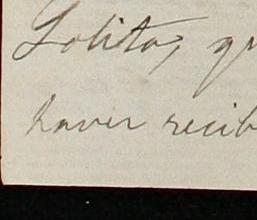 Lolita, qu
haver recib